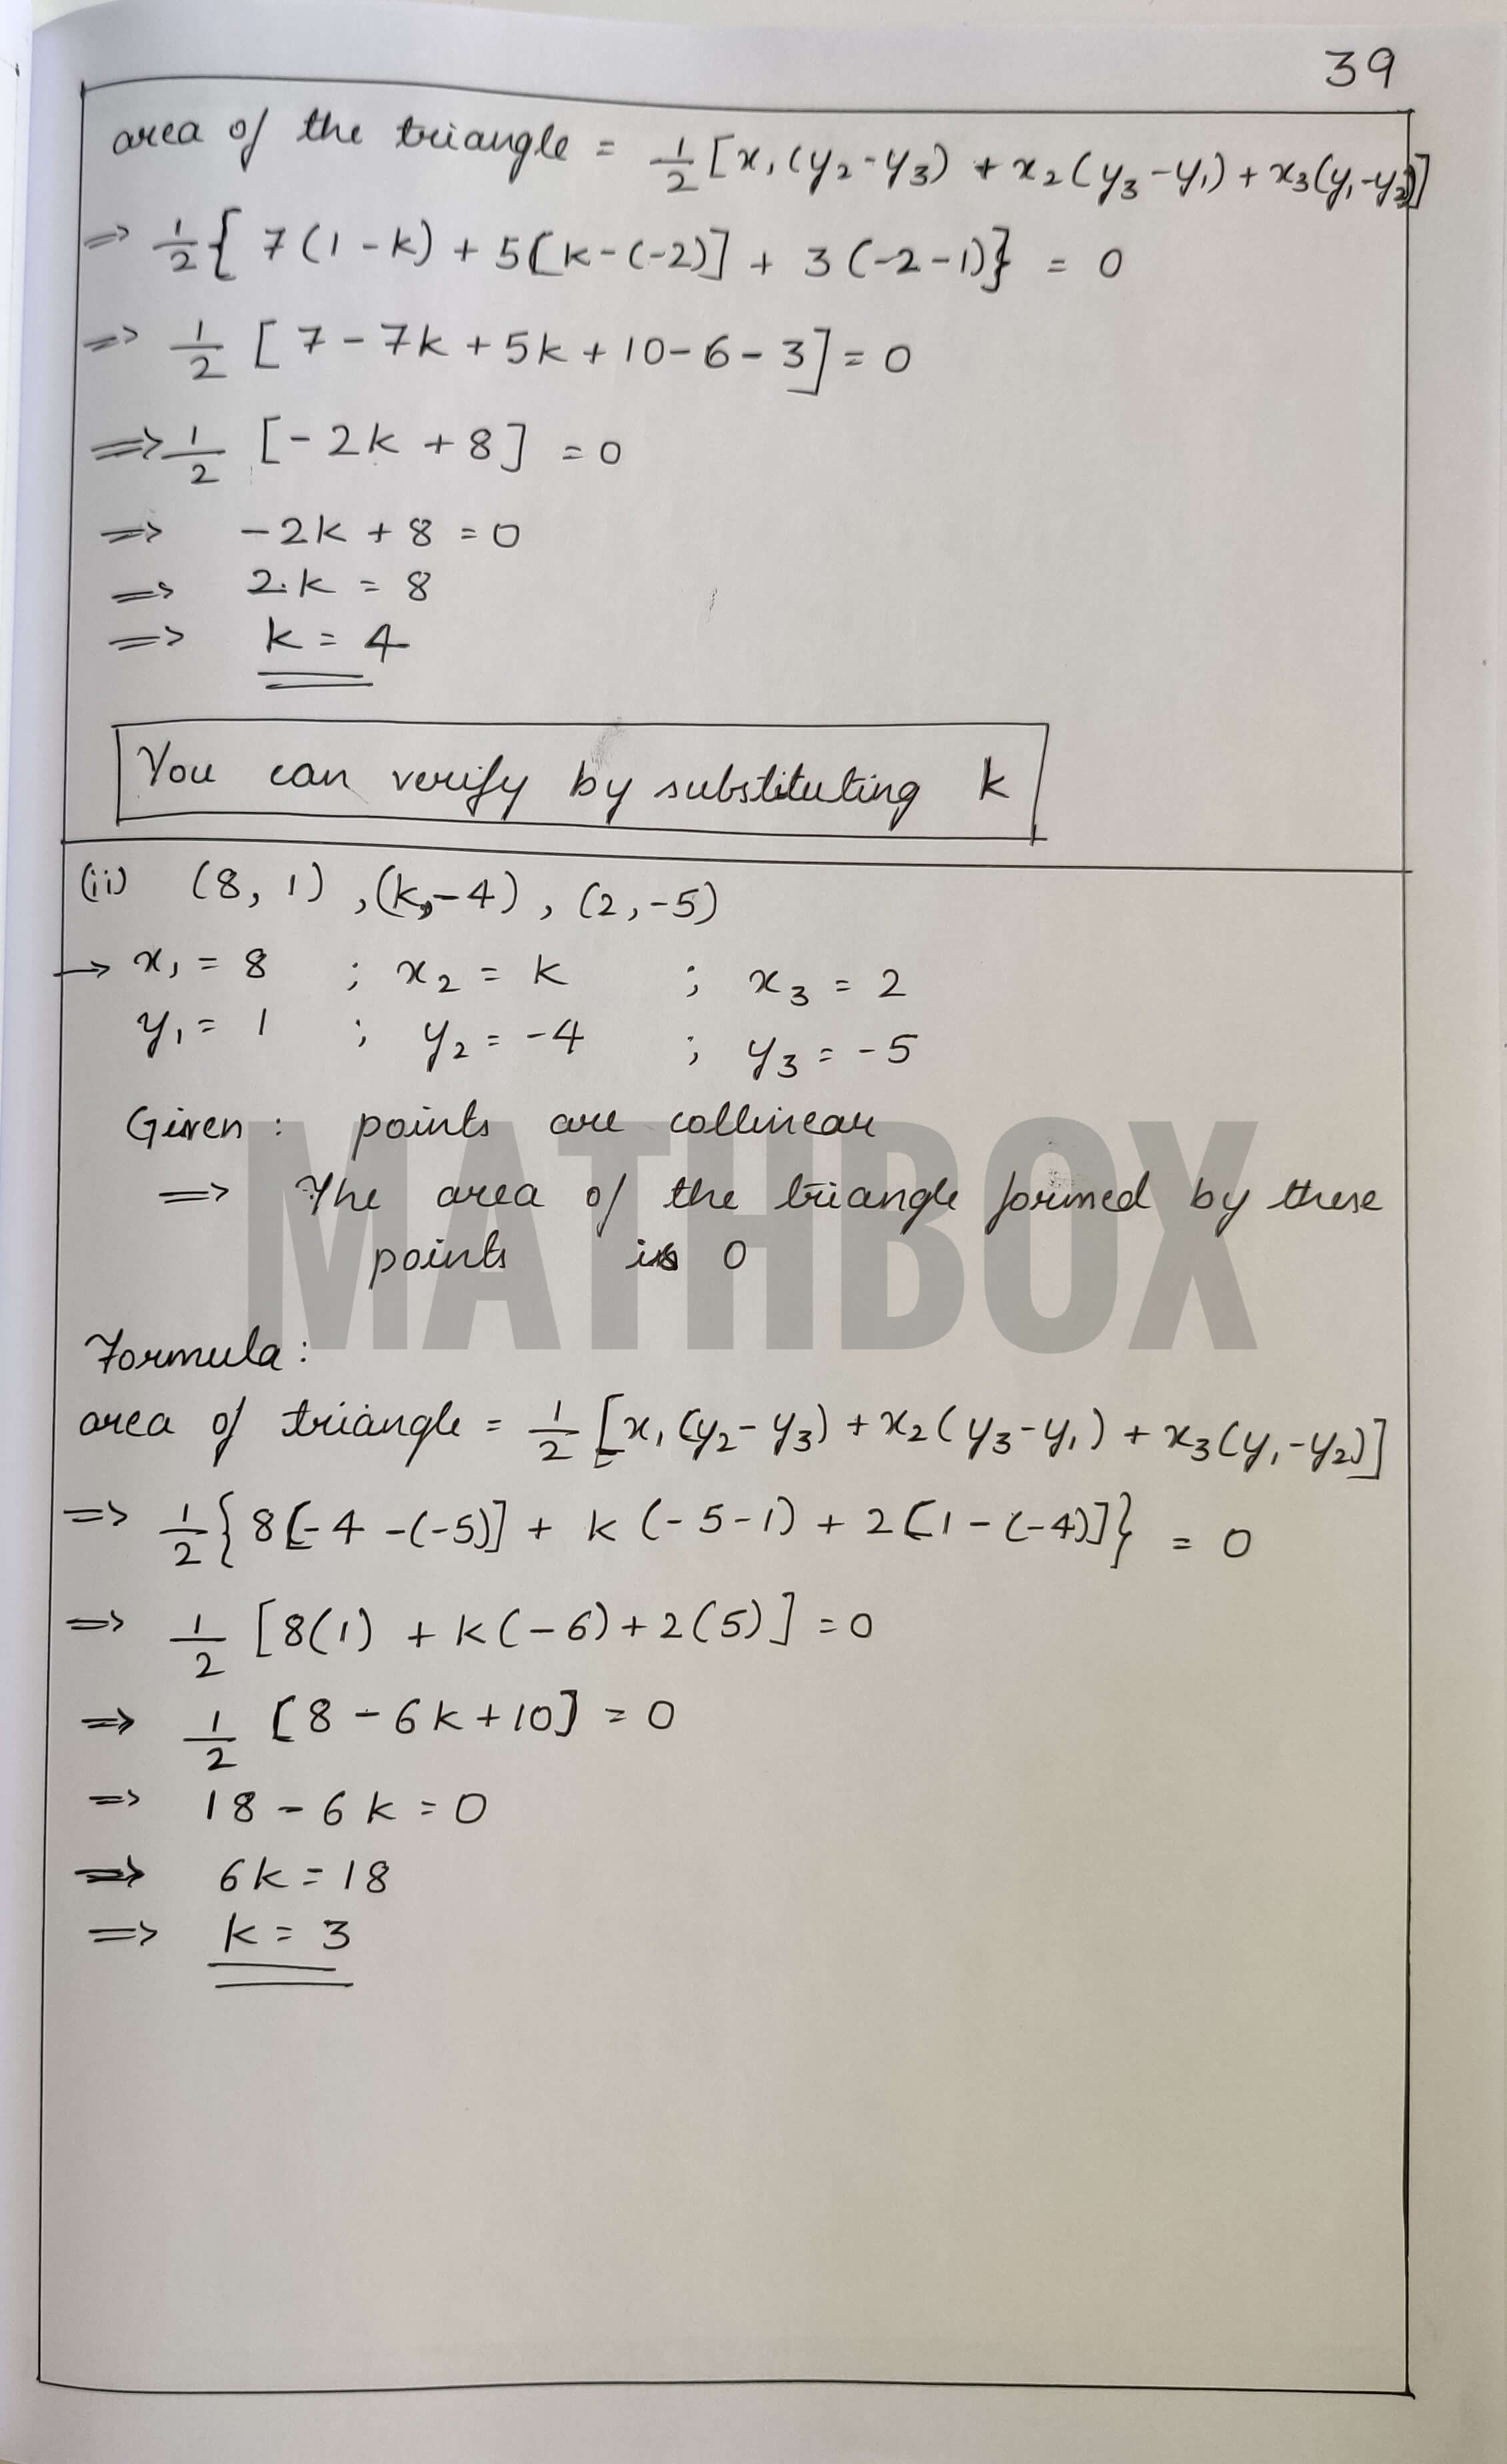 39
area of the triangle = 1/2 [x₁(y₂-y₃) + x₂(y₃-y₁) + x₃(y₁-y₂)]
⇒ 1/2 { 7(1-k) + 5[k-(-2)] + 3(-2-1)} = 0
⇒ 1/2 [7-7k+5k+10-6-3] = 0
⇒ 1/2 [-2k+8] = 0
⇒ -2k+8 = 0
⇒ 2k = 8
⇒ k = 4
You can verify by substituting k
(ii) (8, 1), (k,-4), (2,-5)
→ x₁ = 8 ; x₂ = k ; x₃ = 2
y₁ = 1 ; y₂ = -4 ; y₃ = -5
Given : points are collinear
⇒ The area of the triangle formed by these
points is 0
MATHBOX
Formula :
area of triangle = 1/2 [x₁(y₂-y₃) + x₂(y₃-y₁) + x₃(y₁-y₂)]
⇒ 1/2 {8[-4-(-5)] + k(-5-1) + 2[1-(-4)]} = 0
⇒ 1/2 [8(1) + k(-6) + 2(5)] = 0
⇒ 1/2 [8-6k+10] = 0
⇒ 18-6k = 0
⇒ 6k = 18
⇒ k = 3